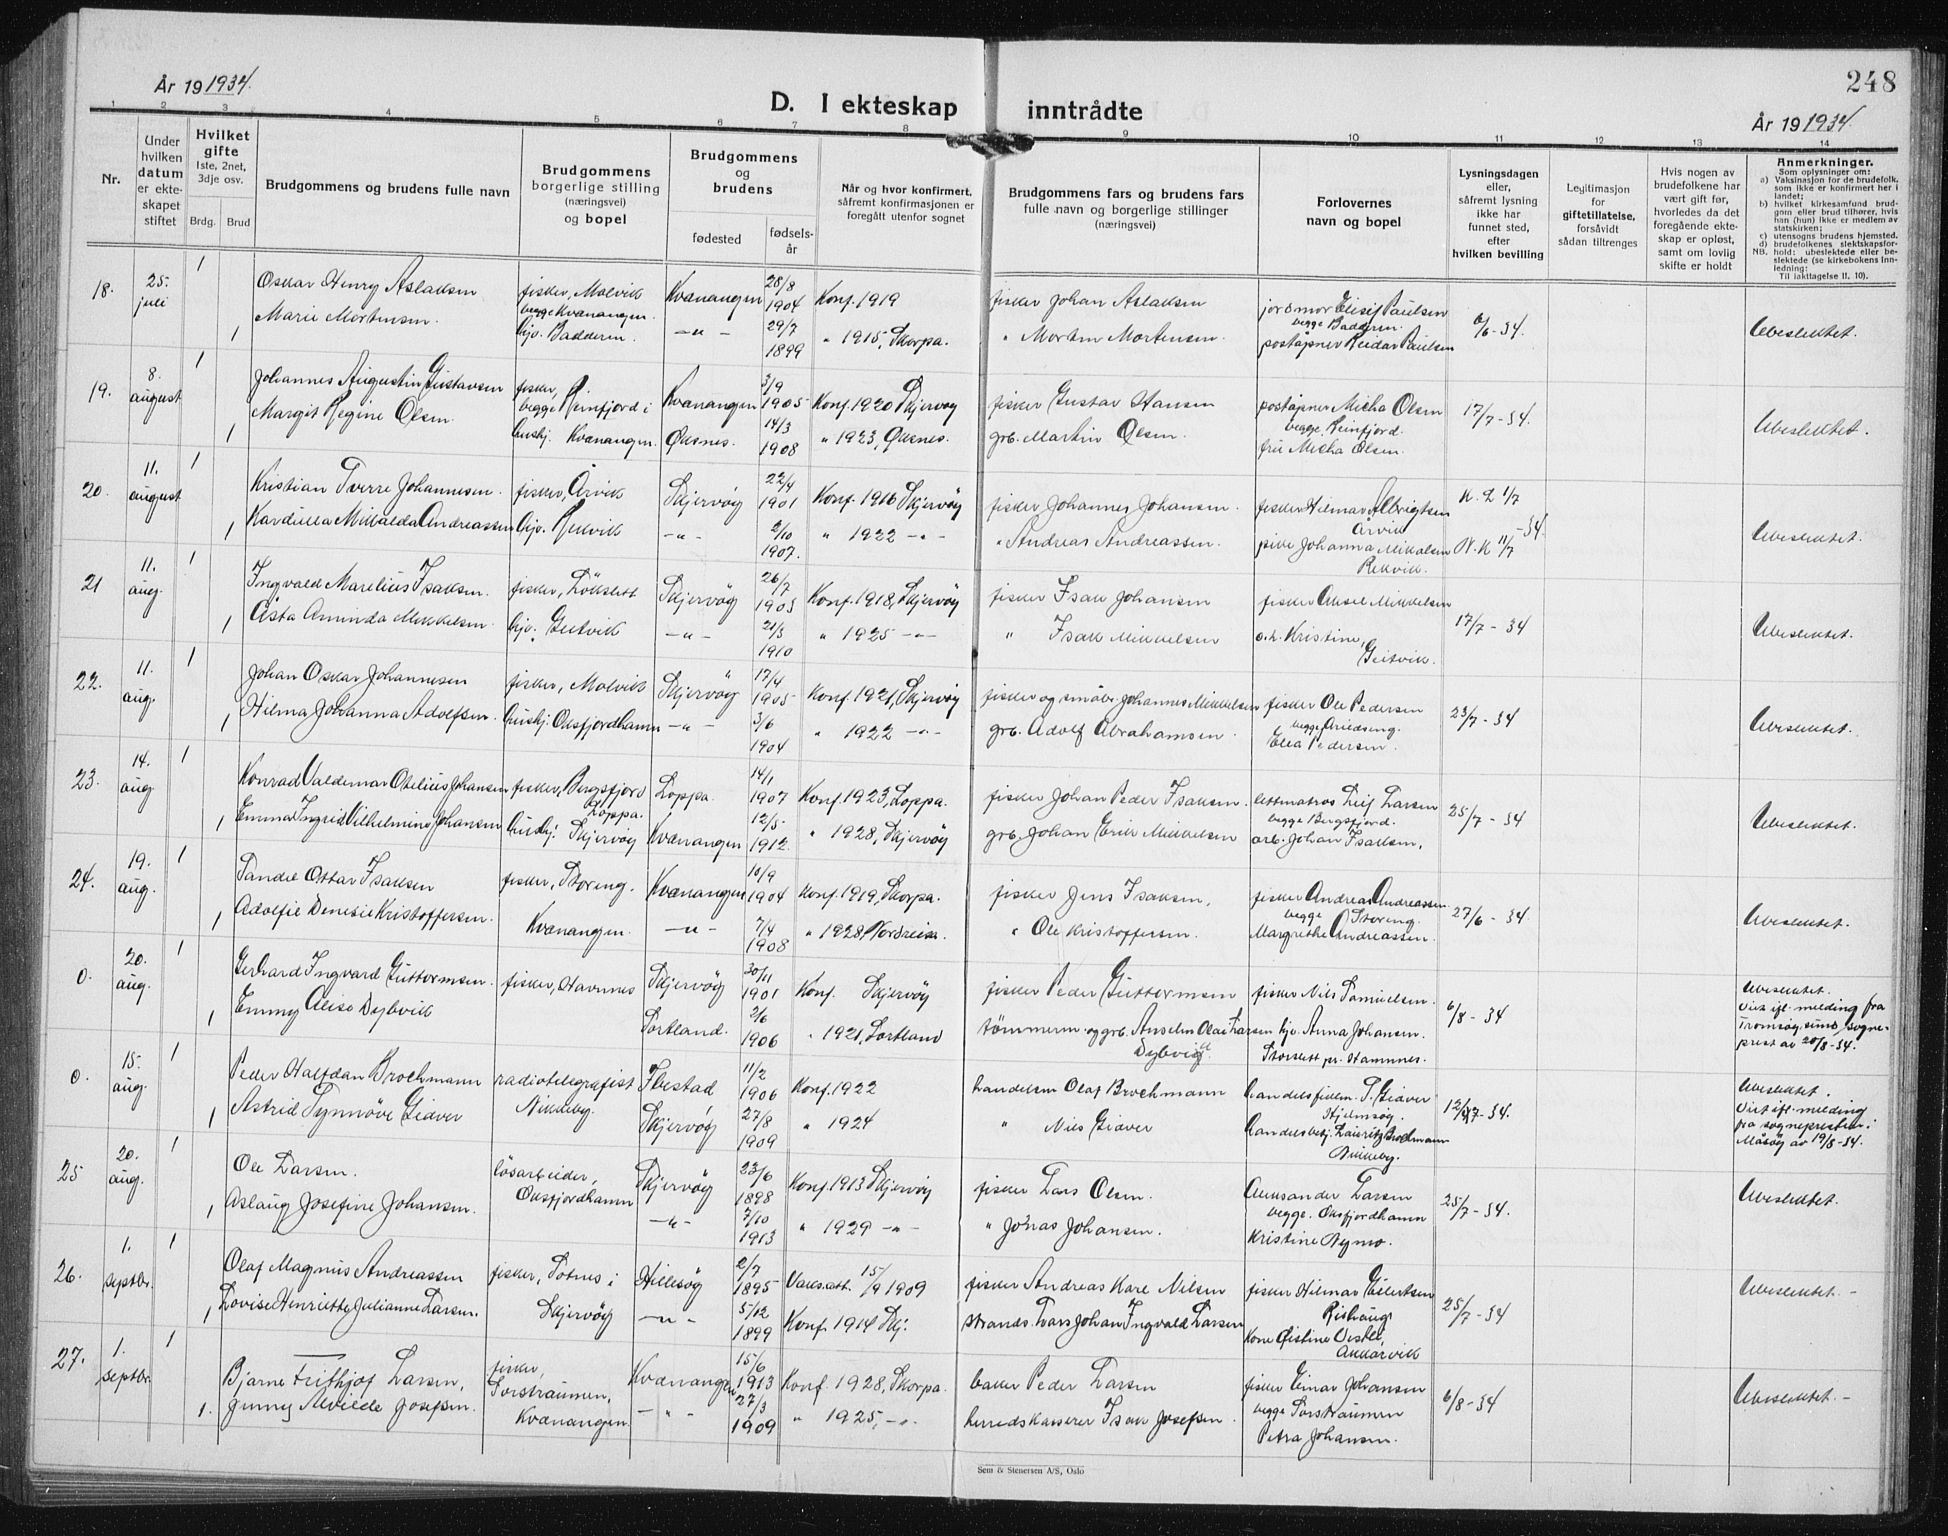 År 19 1934.
D. I ekteskap inntrådte
248
År 19 1934.
1 2 3 4 5 6 7 8 9 10 11 12 13 14
Nr.
Under hvilken datum er ekteskapet stiftet
Hvilket gifte 1ste, 2net, 3dje osv.
Brdg. Brud
Brudgommens og brudens fulle navn
Brudgommens borgerlige stilling (næringsvei) og bopel
Brudgommens og brudens
fødested fødselsår
Når og hvor konfirmert, såfremt konfirmasjonen er foregått utenfor sognet
Brudgommens fars og brudens fars fulle navn og borgerlige stillinger (næringsvei)
Forlovernes navn og bopel
Lysningsdagen eller, såfremt lysning ikke har funnet sted, efter hvilken bevilling
Legitimasjon for giftetillatelse, forsåvidt sådan tiltrenges
Hvis nogen av brudefolkene har vært gift før, hvorledes da det foregående ekteskap er opløst, samt om lovlig skifte er holdt
Anmerkninger.
Som oplysninger om:
a) Vaksinasjon for de brudefolk, som ikke er konfirmert her i landet;
b) hvilket kirkesamfund brudgom eller brud tilhører, hvis han (hun) ikke er medlem av statskirken;
c) utensogns brudens hjemsted.
d) brudefolkenes slektskapsforhold: ubeslektede eller beslektede (se kirkebokens innledning:
NB. Til iakttagelse II, 10).
18. 25. juli 1 Oskar Henry Aslaksen fisker, Molvik Kvænangen 28/8 1904 Konf. 1919 fisker Johan Aslaksen jordmor Elisif Paulsen 6/6-34. Ubeslektet.
1 Marie Mortensen. begge Kvænangen. hjv. Badderen. -"- 29/7 1899 " 1915, Skorpa. " Morten Mortensen. begge Badderen. poståpner Reidar Paulsen
19. 8. august 1 Johannes Augustin Gustavsen fisker, Kvænangen 3/9 1905 Konf. 1920 Skjervøy fisker Gustav Hansen poståpner Micha Olsen 17/7-34. Ubeslektet.
1 Margit Regine Olsen. begge Reinfjord i hushj. Kvænangen. Øksnes. 14/3 1908 " 1923, Øksnes. grb. Martin Olsen. begge Reinfjord. fru Micha Olsen.
20. 11. august 1 Kristian Sverre Johannesen. fisker, Årvik Skjervøy 22/4 1901 Konf. 1916 Skjervøy fisker Johannes Johansen. fisker Hilmar Albrigtsen Årvik K. L 1/7 -34. Ubeslektet.
1 Kardulla Mikalda Andreassen hjv. Rekvik -"- 2/10 1907. " 1922 -"- " Andreas Andreassen. pike Johanna Mikalsen Rekvik. N. K 11/7
21 11. aug. 1 Ingvald Marelius Isaksen. fisker, Lökslett Skjervøy 26/7 1903 Konf. 1918, Skjervøy fisker Isak Johansen fisker Aksel Mikkelsen 17/7-34 Ubeslektet.
1 Asta Aminda Mikkelsen. hjv. Geitvik -"- 21/3 1910 " 1925 -"- " Isak Mikkelsen o.h. Kristine, Geitvik.
22. 11. aug. 1 Johan Oskar Johannesen fisker, Molvik Skjervøy 17/4 1905 Konf. 1921, Skjervøy fisker og småbr. Johannes Mikkelsen fisker Ole Pedersen 23/7-34 Ubeslektet.
1 Hilma Johanna Adolfsen. hushj. Oksfjordhamn -"- 3/6 1904 " 1922 -"- grb. Adolf Abrahamsen. begge Elea Pedersen.
23. 14. aug. 1 Konrad Valdemar Otelius Johansen fisker, Bergsfjord Loppa. Loppa. 14/1 1907 Konf. 1923, Loppa. fisker Johan Peder Isaksen. lettmatros Leif Larsen 25/7-34 Ubeslektet.
Emma Ingrid Vilhelmine Johansen hushj. Skjervøy Kvænangen 12/5 1912 " 1928, Skjervøy grb. Johan Erik Mikkelsen begge Bergsfjord. arb. Johan Isaksen.
24. 19. aug. 1 Sandie Ottar Isaksen fisker, Storeng. Kvænangen 10/9 1904 Konf. 1919, Skorpa. fisker Jens Isaksen, fisker Andreas Andreassen 27/6-34. Ubeslektet.
1 Adolfie Denesie Kristoffersen. Kvænangen. -"- 7/4 1908 " 1928, Nordreisa. " Ole Kristoffersen. begge Storeng. Margrethe Andreassen.
0. 20. aug. 1 Gerhard Ingvard Guttormsen. fisker, Havnnes Skjervøy 30/11 1901 Konf. Skjervøy fisker Peder Guttormsen fisker Nils Samuelsen. 6/8-34 Ubeslektet.
1 Emmy Alise Dybvik Sortland. 2/6 1906 " 1921, Sortland tömmerm. og grb. Anselm Olai Larsen Dybvig. hjv. Anna Johansen. Storslett pr. Havnnes. Viet eft. melding fra Tromsøysund sogneprest av 20/8-34.
0. 15. aug. 1 Peder Halfdan Brochmann radiotelegrafist Ibestad 11/2 1906 Konf. 1922 handelsm Olaf Brochmann handelsfullm. S. Giæver 12/7-34. Ubeslektet.
1 Astrid Synnöve Giæver Nikkeby. Skjervöy 27/8 1909 " 1924 " Nils Giæver Hjelmsøy. handelsbetj. Lauritz Brochmann Nikkeby. Viet eft. melding fra sognepresten i Måsøy av 19/8-34.
25 20. aug. 1 Ole Larsen. lösarbeider, Skjervöy 23/6 1898 Konf. 1913 Skjervöy fisker Lars Olsen. Aleksander Larsen 25/7-34. Ubeslektet.
1 Aslaug Josefine Johansen. Oksfjordhamn -"- 7/10 1913 " 1929 -"- " Jonas Johansen. begge. Oksfjordhamn Kristine Nymo.
26. 1. septbr. 1 Olaf Magnus Andreassen fisker, Sotnes i Hillesøy 2/7 1895 Vaks.att. 15/9 1909 fisker Andreas Kare Nilsen fisker Hilmar Eilertsen 25/7-34 Ubeslektet.-
1 Lovise Henriette Julianne Larsen. Skjervöy -"- 5/12 1899 Konf. 1914 Skj. strands. Lars Johan Ingvald Larsen Rishaug. Kone Akkarvik
27. 1. septbr. 1 Bjarne Frithjof Larsen, fisker, Kvænangen 15/6 1913 Konf. 1928, Skorpa. baker Peder Larsen fisker Einar Johansen 6/8-34 Ubeslektet.-
1. Jenny Alvilde Josefsen. Sørstraumen, Kvænangen. -"- 27/3 1909 " 1925, -"- herredskasserer Isak Josefsen. begge Sørstraumen Petra Johansen.
Sem & Stenersen A/S, Oslo